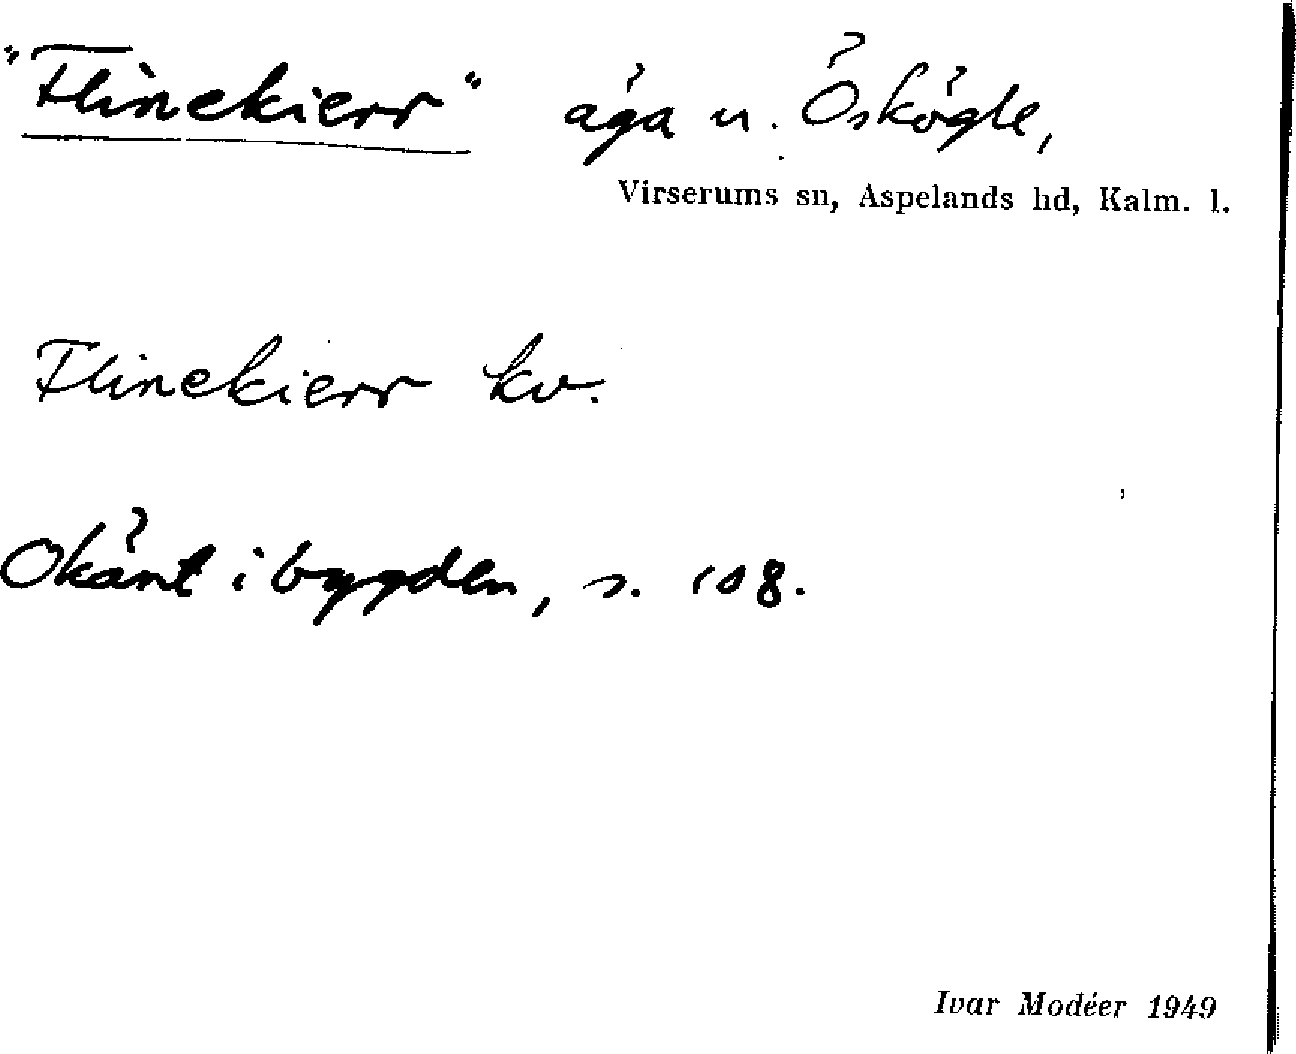 "Flinekierr" äga u. Öskögle,
Virserums sn, Aspelands hd, Kalm. l.
Flinekierr kv.
Okänt i bygden, s. 108.
Ivar Modéer 1949